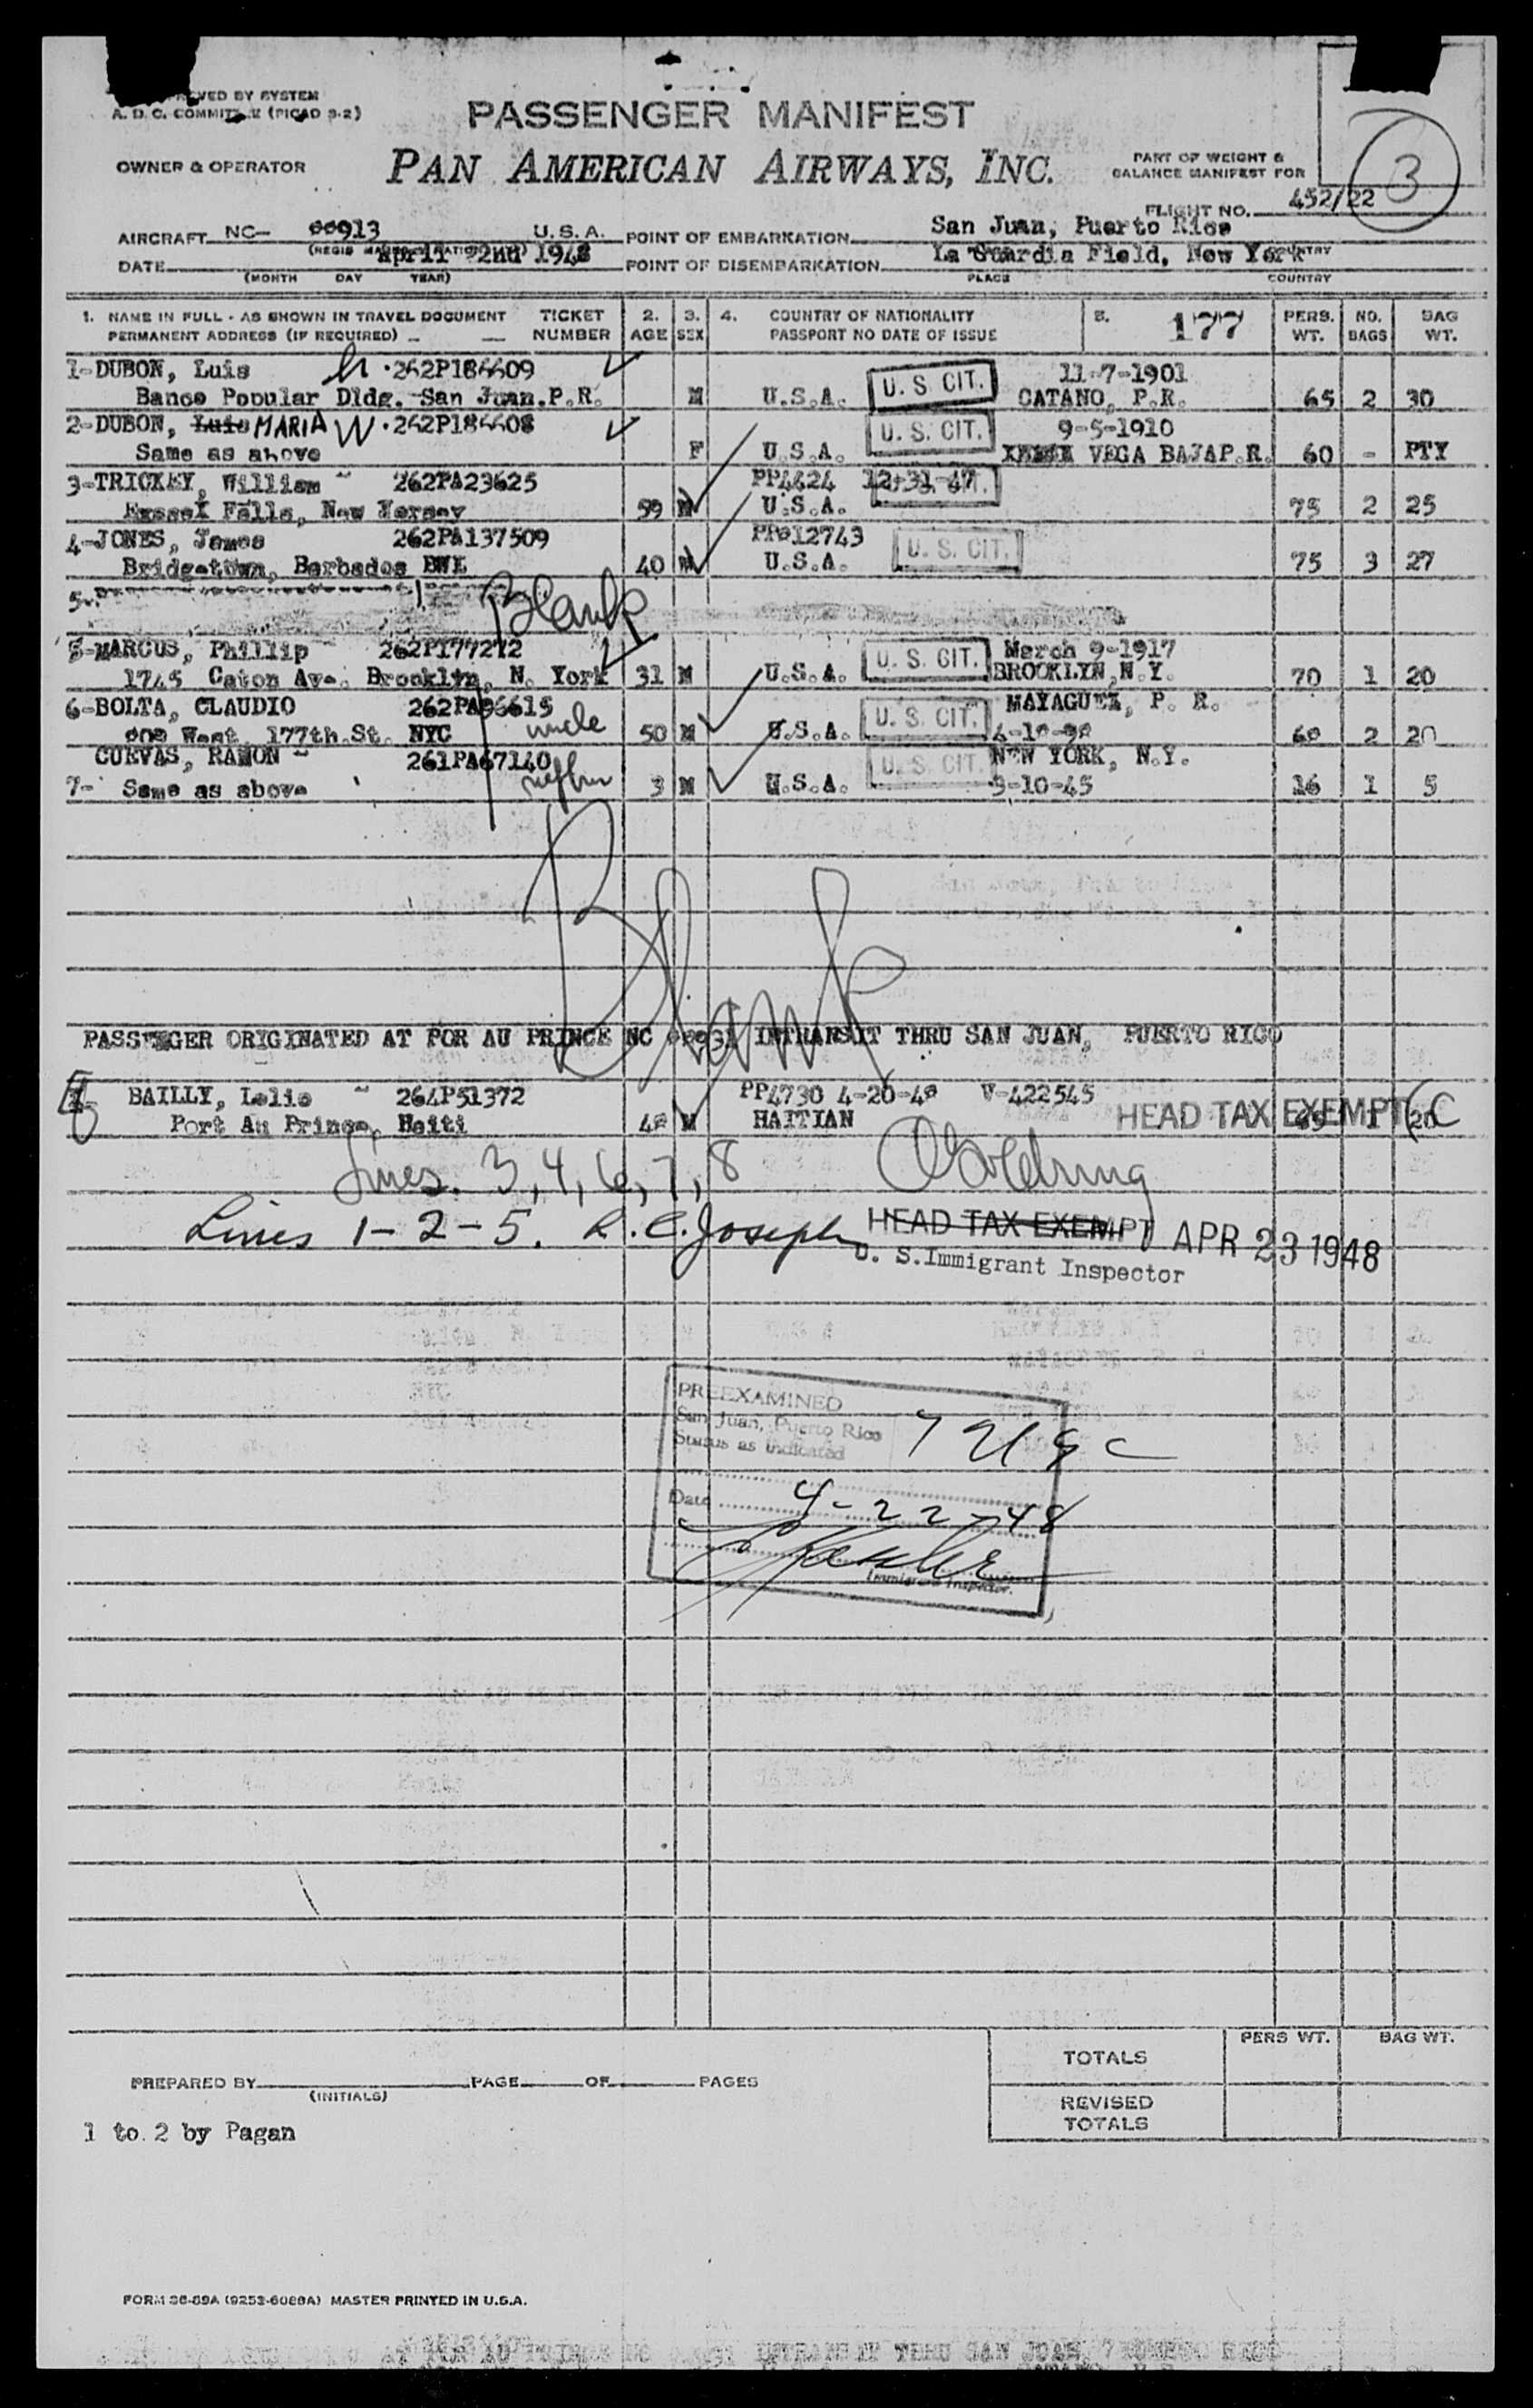 VED BY SYSTEM
A. D. C. COMMIT (PICAO 9-2)
PASSENGER MANIFEST
OWNER & OPERATOR
PAN AMERICAN AIRWAYS, INC.
PART OF WEIGHT &
BALANCE MANIFEST FOR
3
FLIGHT NO. 452/22
AIRCRAFT NC- 00913 U.S.A. POINT OF EMBARKATION San Juan, Puerto Rico
DATE April 2nd 1948 POINT OF DISEMBARKATION La Guardia Field, New York
(MONTH DAY YEAR) PLACE COUNTRY
1. NAME IN FULL - AS SHOWN IN TRAVEL DOCUMENT TICKET 2. 3. 4. COUNTRY OF NATIONALITY 5. 177 PERS. NO. BAG
PERMANENT ADDRESS (IF REQUIRED) NUMBER AGE SEX PASSPORT NO DATE OF ISSUE WT. BAGS WT.
1-DUBON, Luis h 262P186609 11-7-1901
Banco Popular Bldg. San Juan.P.R. M U.S.A. U. S. CIT. CATANO, P.R. 65 2 30
2-DUBON, Luis MARIA W 262P186608 9-5-1910
Same as above F U.S.A. U. S. CIT. VEGA BAJA P.R. 60 - PTY
3-TRICKEY, William 262PA23625 PP4424 12-31-47
Essex Falls, New Jersey 59 M U.S.A. 75 2 25
4-JONES, James 262PA137509 PP012743
Bridgetown, Barbados BWI 40 M U.S.A. U. S. CIT. 75 3 27
5- Blank
5-MARCUS, Phillip 262P177272 March 9-1917
1745 Caton Ave. Brooklyn, N. York 31 M U.S.A. U. S. CIT. BROOKLYN, N.Y. 70 1 20
6-BOLTA, CLAUDIO 262PA96615 MAYAGUEZ, P. R.
one West 177th.St. NYC uncle 50 M U.S.A. U. S. CIT. 60 2 20
CUEVAS, RAMON 261PA67140 NEW YORK, N.Y.
7- Same as above 3 M U.S.A. U. S. CIT. 9-10-45 16 1 5
Blank
PASSENGER ORIGINATED AT POR AU PRINCE NC INTRANSIT THRU SAN JUAN, PUERTO RICO
BAILLY, Lelio 264P51372 PP4730 4-20-48 V-422545
Port Au Prince, Haiti 48 M HAITIAN HEAD TAX EXEMPT 1 20
Lines. 3, 4, 6, 7, 8
Lines 1-2-5. R. C. Joseph HEAD TAX EXEMPT APR 23 1948
U. S. Immigrant Inspector
PREEXAMINED
San Juan, Puerto Rico
Status as indicated
Date 4-22-48
Immigrant Inspector.
PERS WT. BAG WT.
TOTALS
PREPARED BY PAGE OF PAGES
(INITIALS)
REVISED
TOTALS
1 to 2 by Pagan
FORM 36-89A (9253-6088A) MASTER PRINTED IN U.S.A.